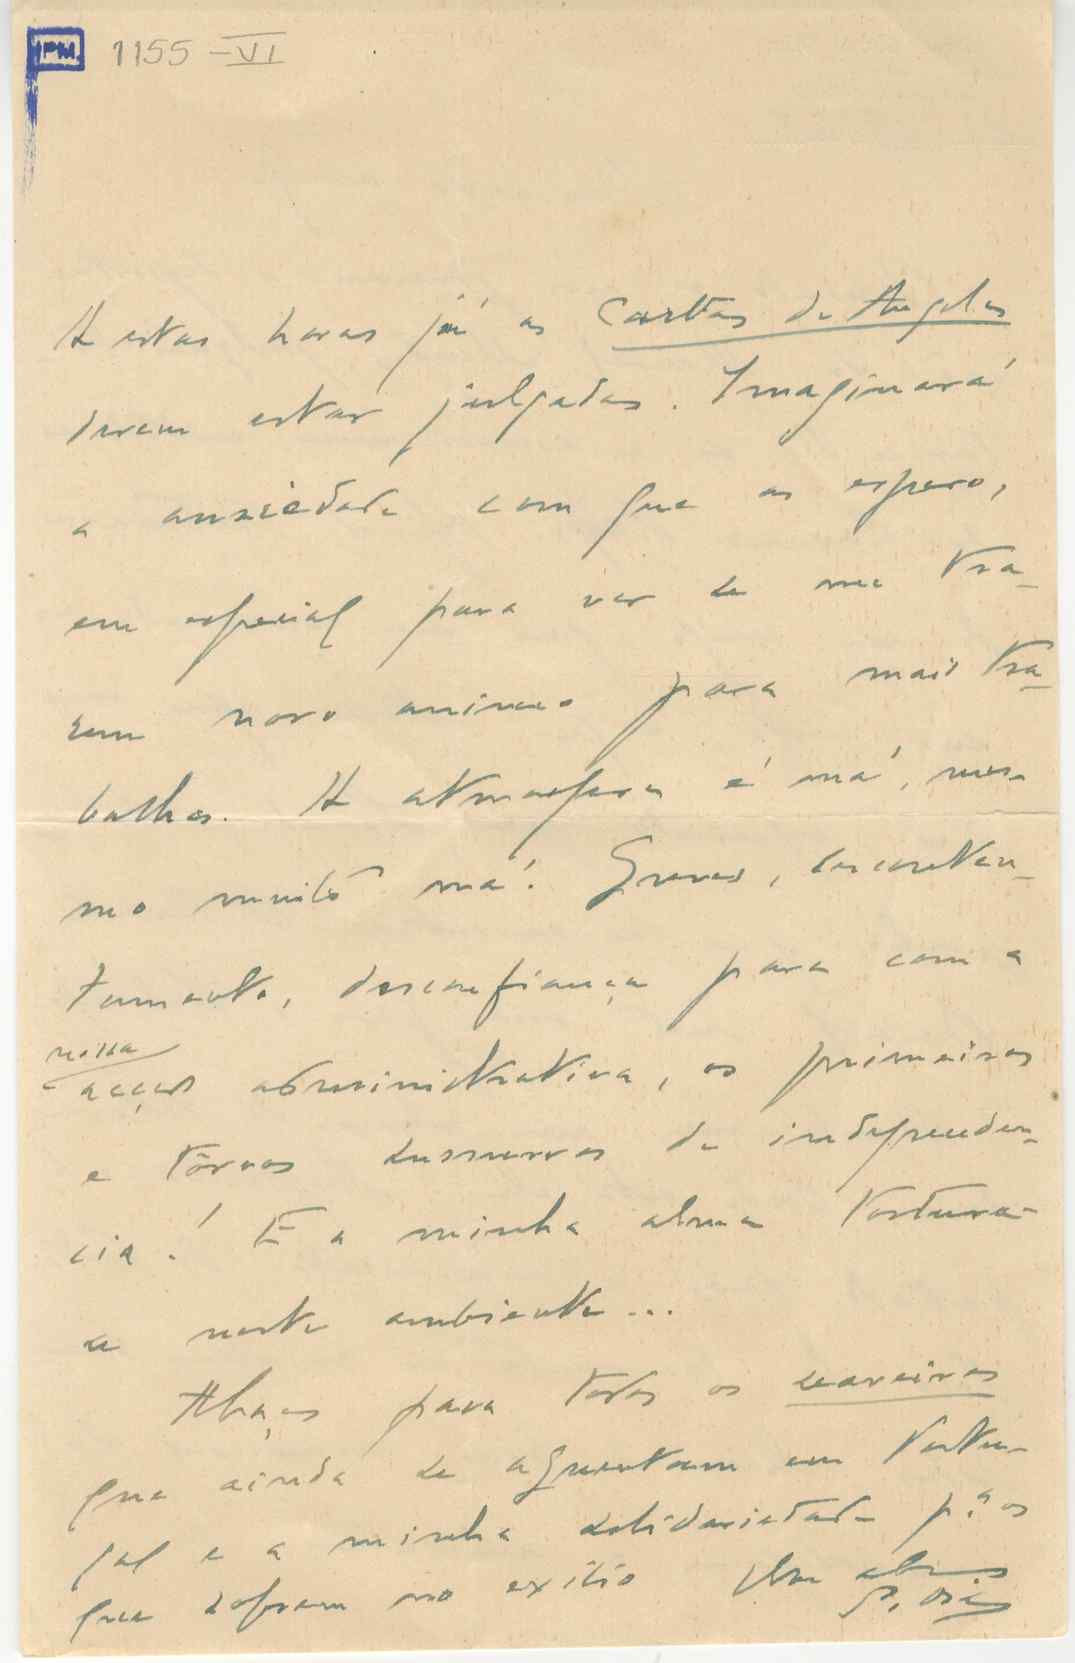 IPM 1155-VI
A estas horas já as Cartas de Angola
devem estar julgadas. Imaginará
a ansiedade com que as espero,
em especial para ver se me tra-
zem novo animo para mais tra-
balhos. A atmosfera é má, mes-
mo muito má! Greves, desconten-
tamento, desconfiança para com a
nossa
acção administrativa, os primeiros
e tôrvos sussurros de independen-
cia! E a minha alma tortura-
se neste ambiente...
Abraços para todos os seareiros
que ainda se aguentam em Portu-
gal e a minha solidariedade p.ª os
que sofrem no exilio Um abraço